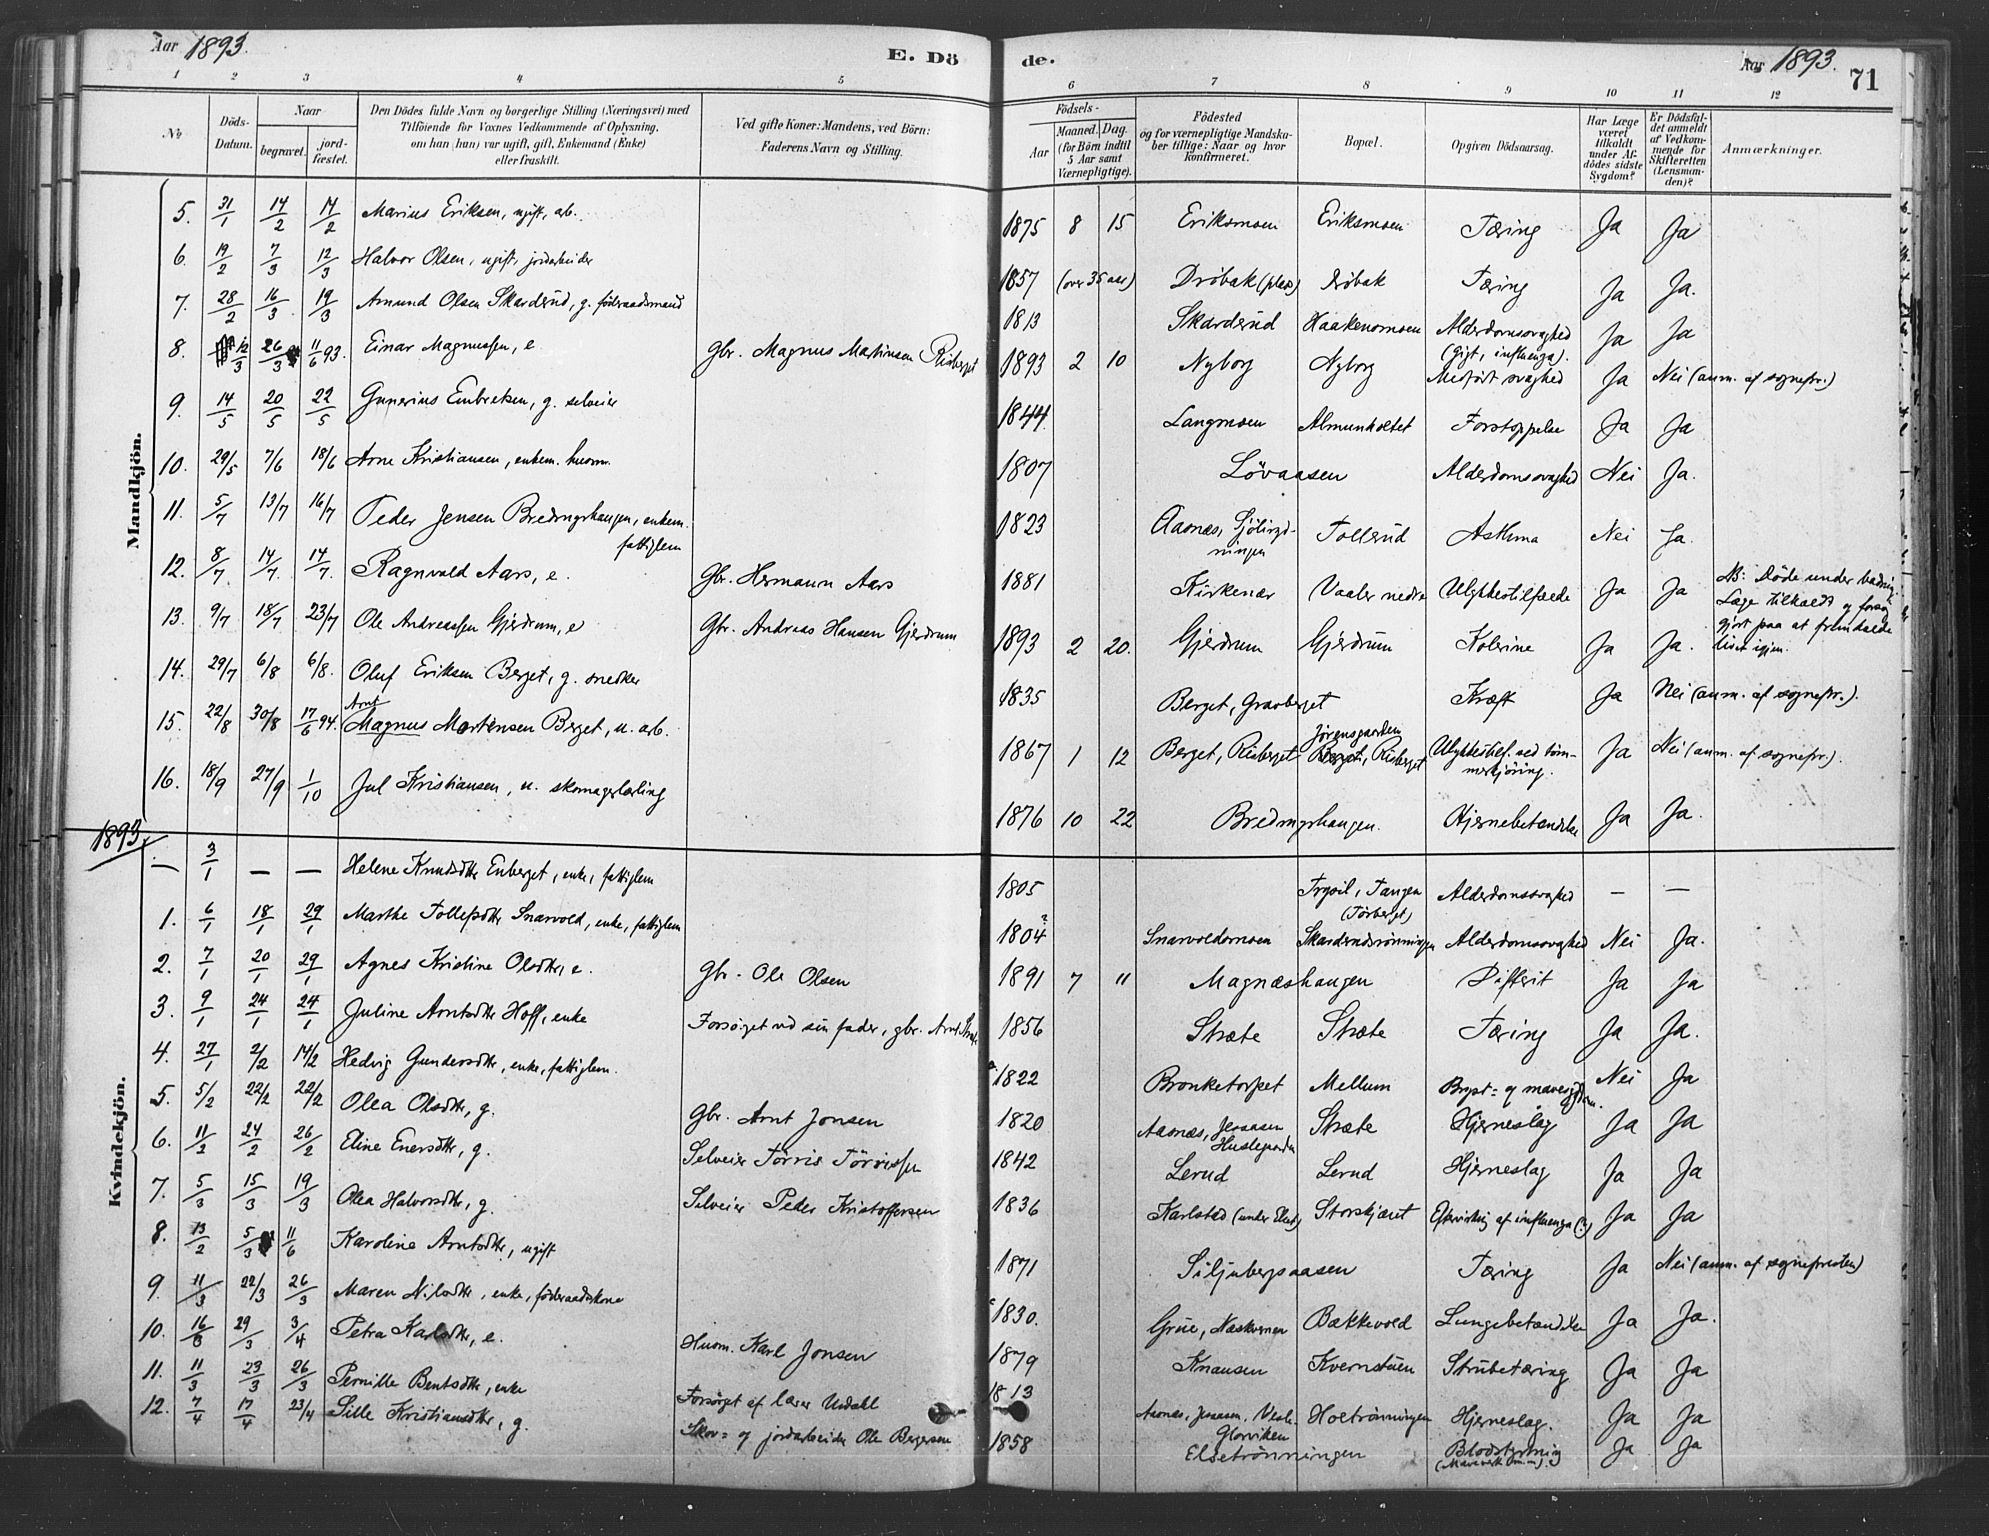 Aar 1893. E. Dö de. Aar 1893. 71
1 2 3 4 5 6 7 8 9 10 11 12
No
Döds-Datum.
Naar
begravet.
jord-fæstet.
Den Dödes fulde Navn og borgerlige Stilling (Næringsvei) med
Tilföiende for Voxnes Vedkommende af Oplysning.
om han (hun) var ugift, gift, Enkemand (Enke)
eller fraskilt.
Ved gifte Koner: Mandens, ved Börn:
Faderens Navn og Stilling.
Födsels-
Aar
Maaned. Dag.
(for Börn indtil
5 Aar samt
Værnepligtige).
Födested
og for værnepligtige Mandska-
ber tillige: Naar og hvor
konfirmeret.
Bopæl.
Opgiven Dödsaarsag.
Har Læge
været
tilkaldt
under Af-
dödes sidste
Sygdom?
Er Dödsfal-
det anmeldt
af Vedkom-
mende for
Skifteretten
(Lensman-
den)?
Anmærkninger.
Mandkjön.
5. 31/1 14/2 14/2 Marius Eriksen, ugift, arb. 1875 8 15 Eriksmoen Eriksmoen Tæring Ja Ja
6. 19/2 7/3 12/3 Halvor Olsen, ugift, jordarbeider 1857 (over 35 aar) Dröbak (plads) Dröbak Tæring Ja Ja.
7. 28/2 16/3 19/3 Amund Olsen Skarderud, g. föderaadsmand 1813 Skarderud Haakensmoen Alderdomssvaghed (Gigt, influenza). Ja Ja
8. 12/3 26/3 11/6 93. Einar Magnussen, e. Gbr. Magnus Martinsen Risberget 1893 2 10 Nyborg Nyborg Medfödt svaghed Ja Nei (anm. af sognepr.)
9. 14/5 20/5 22/5 Gunerius Embretsen, g. selveier 1844 Langmoen Almunholtet Forstoppelse Ja Ja
10. 29/5 7/6 18/6 Arne Kristiansen, enkem. husm. 1807 Lövaasen Alderdomssvaghed Nei Ja.
11. 5/7 13/7 16/7 Peder Jensen Bredingshaugen, enkem. fattiglem 1823 Aasnæs, Tollerud Asthma Nei Ja.
12. 8/7 14/7 14/7 Ragnvald Aars, e. Gbr. Hermann Aars 1881 Kirkenær Vaaler nedre Ulykkestilfælde Ja Ja NB: Döde under badning. Læge tilkaldt og forsög gjort paa at fremkalde livet igjen.
13. 9/7 18/7 23/7 Ole Andreassen Gjerdrum, e Gbr. Andreas Hansen Gjerdrum 1893 2 20. Gjerdrum Gjerdrum Kolerine Ja Ja.
14. 29/7 6/8 6/8. Oluf Eriksen Berget, g. snedker 1835 Berget, Gravberget Kræft Ja Nei (anm. af sognepr.).
15. 22/8 30/8 17/6 94. Arnt Magnus Mortensen Berget, u. arb. 1867 1 12 Berget, Risberget Jörensgarden Berget, Risberget Ulykkestilf. ved töm-merkjöring. Ja Nei (anm. af sognepr.).
16. 18/9 27/9 1/10 Jul Kristiansen, u. skomagerlærling 1876 10 22 Bredingshaugen. Hjernebetændelse Ja Ja.
1893.
Kvindekjön.
— 3/1 — — Helene Knudsdtr Enberget, enke, fattiglem 1805 Trysil, Tangen (Törberget) Alderdomssvaghed — —
1. 6/1 18/1 29/1 Marthe Tollefsdtr Snarvold, enke, fattiglem 1804? Snarvoldsmoen Skarderudsrönningen Alderdomssvaghed Nei Ja.
2. 7/1 20/1 29/1 Agnes Kristine Olsdtr, e. Gbr. Ole Olsen 1891 7 11 Magnæshaugen Difterit Ja Ja
3. 9/1 24/1 24/1 Juline Arntsdtr Hoff, enke Forsörget ved sin fader, gbr. Arnt Stræte 1856 Stræte Stræte Tæring Ja Ja.
4. 27/1 2/2 14/2 Hedvig Gundersdtr, enke, fattiglem. 1822 Bronketorpet Mellum Bryst= og mavesygdom. Nei Ja
5. 5/2 22/2 22/2 Olea Olsdtr, g. Gbr. Arnt Jonsen 1820 Aasnæs, Stræte Hjerneslag Ja Ja
6. 11/2 24/2 26/2 Eline Enersdtr, g. Selveier Törris Törrissen 1842 Lerud Lerud Hjerneslag Ja Ja
7. 5/3 15/3 19/3 Olea Halvorsdtr, g. Selveier Peder Kristoffersen 1836 Karlstad Storskjæret Eftervirkning af influenza (?) Ja Ja
8. 13/2 5/3 11/6 Karoline Arntsdtr, ugift 1871 Siljubergsaasen Tæring Ja Nei (anm. af sognepresten)
9. 11/3 22/3 26/3 Maren Nilsdtr, enke, föderaadskone 1830. Grue, Næskvernen Bakkevold Lungebetændelse Ja Ja.
10. 16/3 29/3 3/4 Petra Karlsdtr, e. Husm. Karl Jonsen 1879 Knausen Kvernstuen Strubetæring Ja Ja
11. 11/3 23/3 26/3 Pernille Berntsdtr, enke Forsörget af lærer Udall 1813 Aasnæs, Gloviken Holtrönningen Hjerneslag. Ja Ja
12. 7/4 17/4 23/4 Sille Kristiansdtr, g. Skov= og jordarbeider Ole Bergersen 1858 Elsetrönningen Blodstyrtning Ja Ja